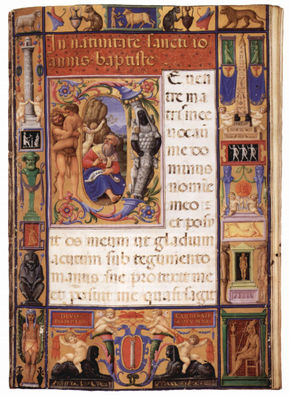 In natiuitate sancti io
annis baptiste
E uen
tre ma
tris mee
uocaui
me do
minus
nomīe
meo:
et posu
it os meum ut gladium
acutum sub tegumento
manus sue protexit me
et posuit me quasi sagit
DIVO
CARDINALI